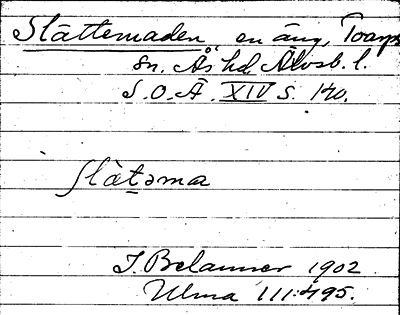 Slättemaden, en äng, Toarps
sn. Ås hd Älvsb. l.
S.O.Ä. XIV s. 140.
slàt̠əma
J. Belanner 1902
Ulma 111:495.